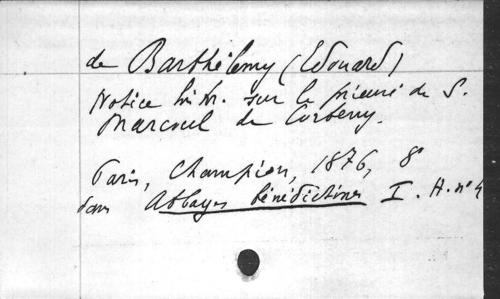 de Barthélemy (Edouard)
Notice hist. sur le prieuré de S.
Marcoul de Corbeny.
Paris, Champion, 1876, 8°
dans Abbayes bénédictines I. H. n° 4